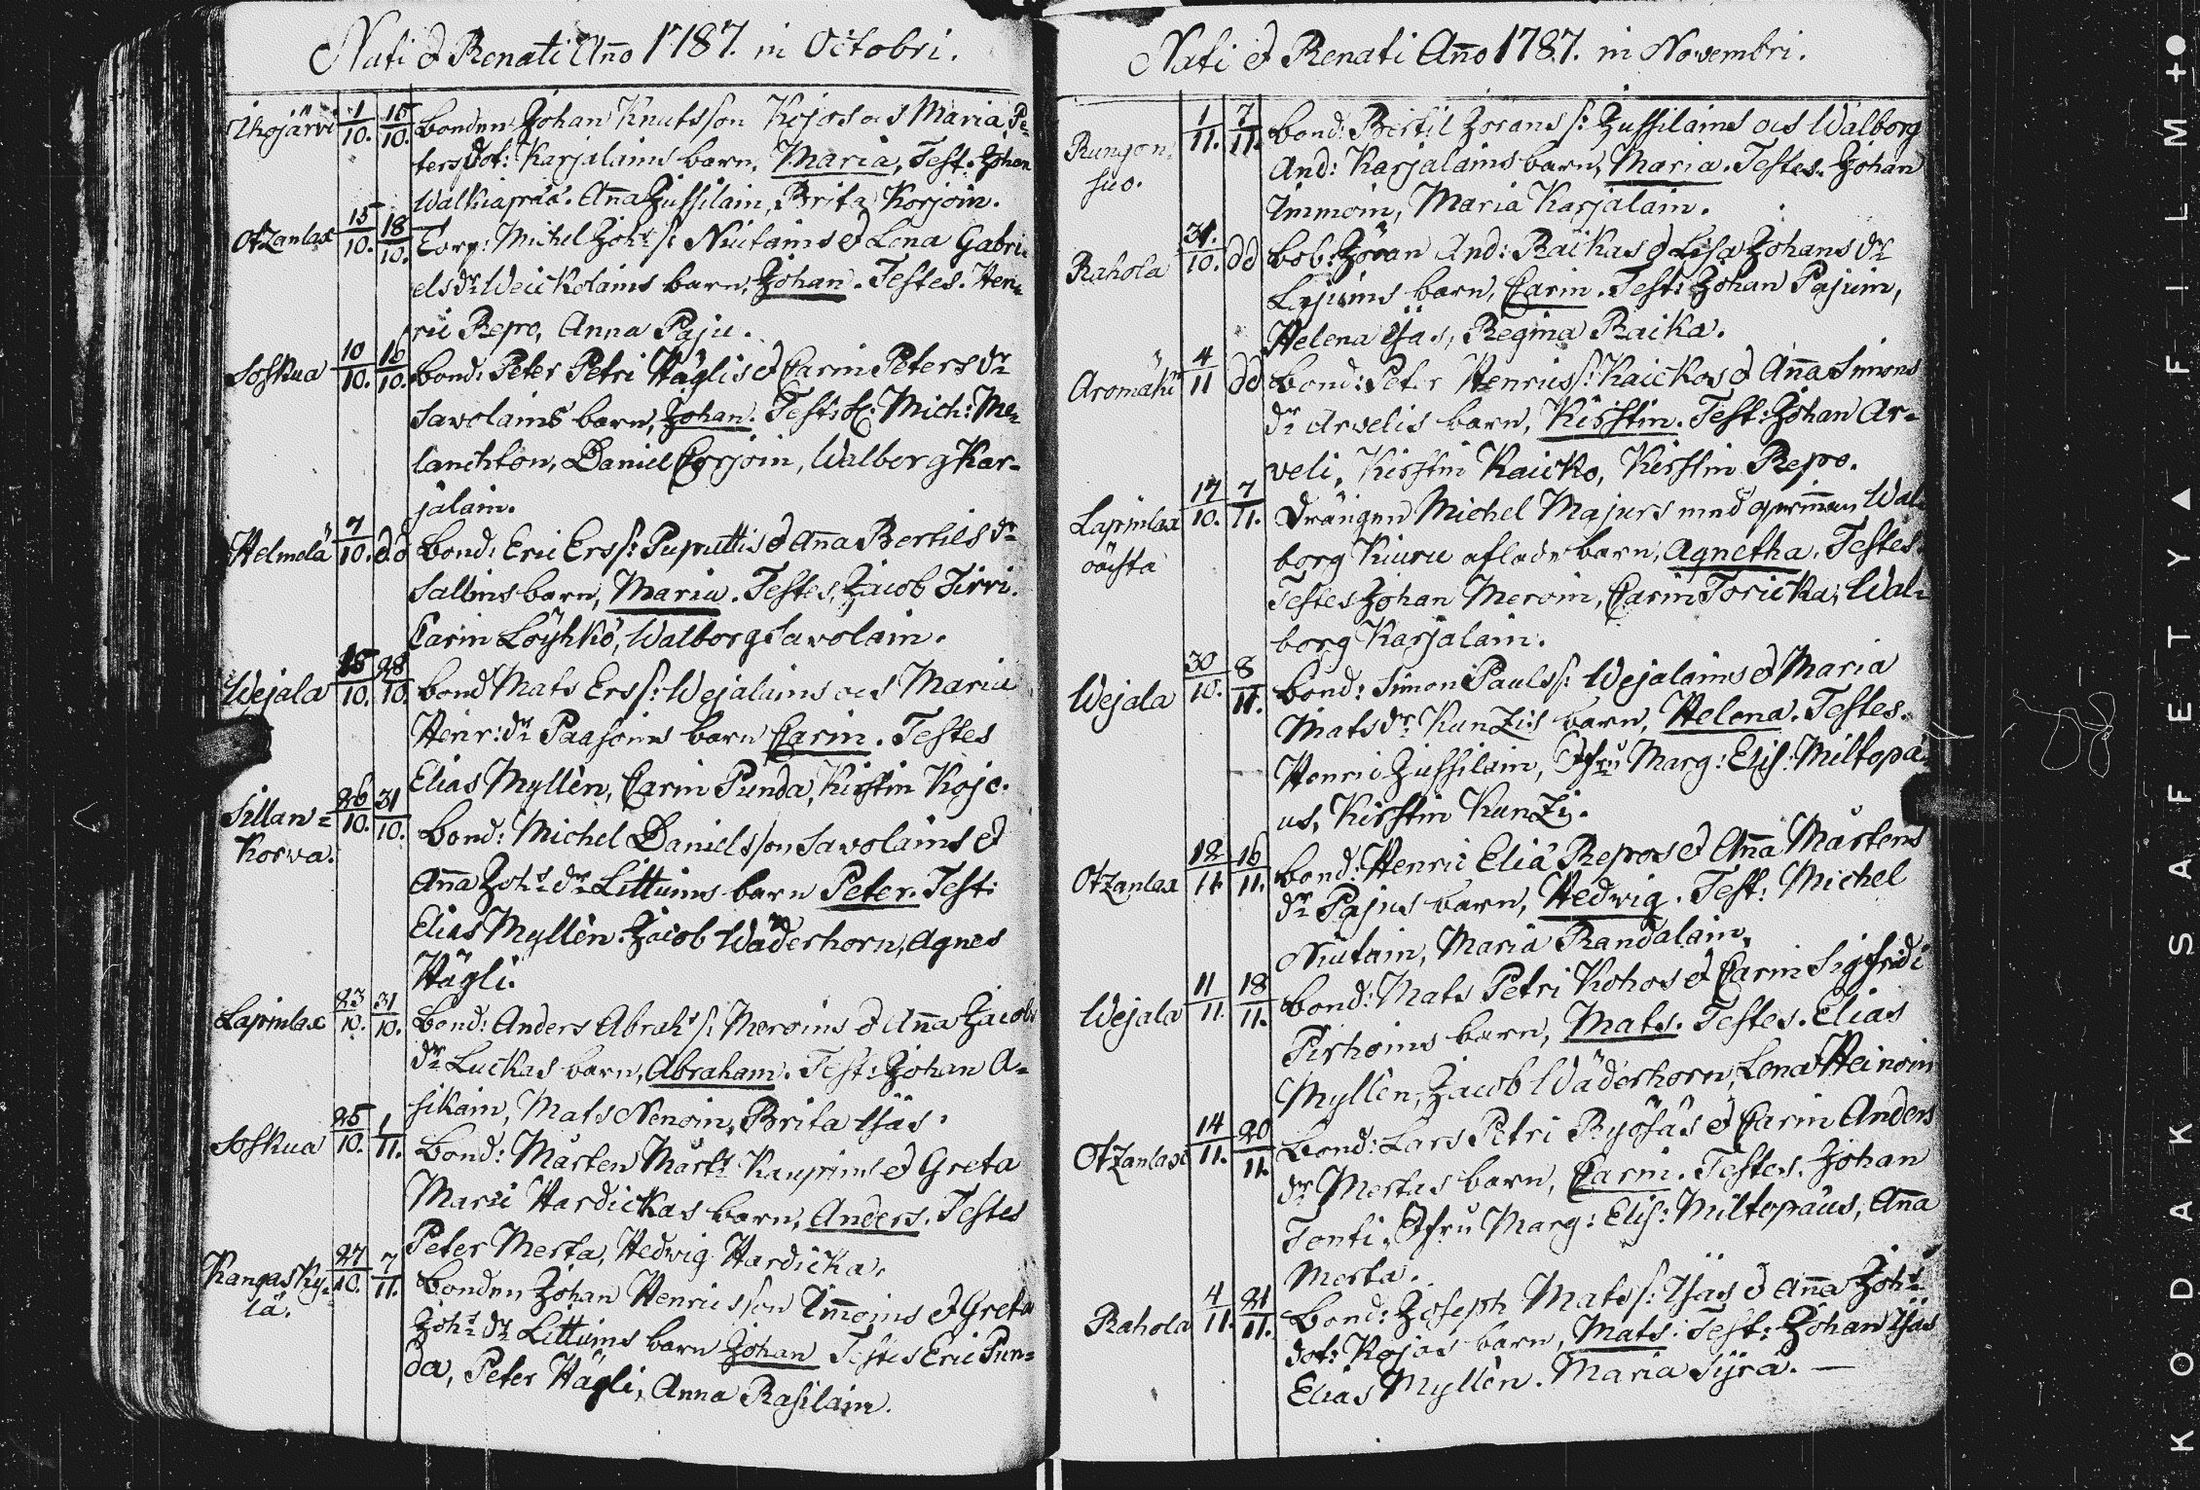 Nati & Renati Año 1787. in Octobri.
Ikojärvi 1/10. 15/10. bonden Johan Knutsson Kojos och Maria Pe-
tersdot: Karjalains barn, Maria, Test. Johan
Walkiapää. Aña Jussilain, Brita Korjoin.
Otzanlax 15/10. 18/10. Torp: Michel Johs s: Niutains & Lena Gabri-
elsdr Weickolains barn, Johan. Testes. Hen-
ric Repo, Anna Paju.
Soskua 10/10. 16/10. bond: Peter Petri Häglis & Carin Petersdr
Savolains barn, Johan. Test: Mich: Me-
lanchton, Daniel Corjoin, Walborg Kar-
jalain.
Helmelä 7/10. dd bond: Eric Ers s: Puputtis & Aña Bertilsdr
Sallins barn, Maria. Testes, Jacob Sirri.
Carin Löyhkö, Walborg Savolain.
Wejala 15/10. 28/10. bond Mats Ers s: Wejalains och Maria
Henr: dr Paasoins barn Carin. Testes
Elias Myllèn, Carin Punda, Kirstin Kojo.
Sillan= korva. 26/10. 31/10. bond: Michel Danielsson Savolains &
Aña Johs dr Littuins barn Peter. Test:
Elias Myllèn. Jacob Wäderhorn, Agnes
Hägli.
Lapinlax 23/10. 31/10. bond: Anders Abrahs s: Meroins & Aña Jacobs
dr Luckas barn, Abraham. Test: Johan A-
sikain, Mats Nenoin, Brita Isäs.
Soskua 25/10. 1/11. bond: Mårten Mårts Kauppins & Greta
Marii Hardickas barn, Anders. Testes
Peter Merta, Hedwig Hardicka.
Kangasky= lä. 27/10. 7/11. bonden Johan Henricsson Iṁoins & Greta
Johs dr Littuins barn Johan Testes Eric Pun=
da, Peter Hägli, Anna Rasilain.
Nati & Renati Año 1787. in Novembri.
Rungon= suo. 1/11. 7/11. bond: Bertil Jorans s: Jussilains och Walborg
And: Karjalains barn, Maria. Testes. Johan
Immoin, Maria Karjalain.
Rahola 31/10. dd bob: Jöran And: Raikas & Lisa Johansdr
barn, Carin. Test: Johan Pajuin,
Helena Isäs, Regina Raika.
Aromäki 4/11 dd bond: Peter Henrics s: Kaickos & Aña Simons
dr Arvelis barn, Kirstin. Test: Johan Ar-
veli, Kirstin Kaicko, Kirstin Repo.
Lapinlax oächta 17/10. 7/11. Drängen Michel Majurs med qvinnan Wal-
borg Kiuru aflade barn, Agnetha. Testes.
Testes Johan Meroin, Carin Toricka, Wal-
borg Karjalain.
Wejala 30/10. 8/11. bond: Simon Pauls s: Wejalains & Maria
Matsdr Kunzis barn, Helena. Testes.
Henric Jussilain, Jfru Marg: Elis: Miltopæ-
us, Kirstin Kunzi.
Otzanlax 12/11. 16/11. bond: Henric Eliä Repos & Aña Mårtens
dr Pajus barn, Hedwig. Test: Michel
Niutain, Maria Randalain.
Wejala 11/11. 18/11. bond: Mats Petri Kohos & Carin Sigfridi
Pirhoins barn, Mats. Testes. Elias
Myllèn, Jacob Wäderhorn, Lena Heinoin
Otzanlax 14/11. 20/11. bond: Lars Petri Ryösäs & Carin Anders
dr Mertas barn, Carin. Testes. Johan
Tonti, Jfru Marg: Elis: Miltopäus, Aña
Merta.
Rahola 4/11. 21/11. bond: Joseph Mats s: Isäs & Aña Johs
dot: Kojas barn, Mats. Test: Johan Isäs
Elias Myllèn. Maria Syrä. —
KODAK - SAFETY ▲ FILM +●